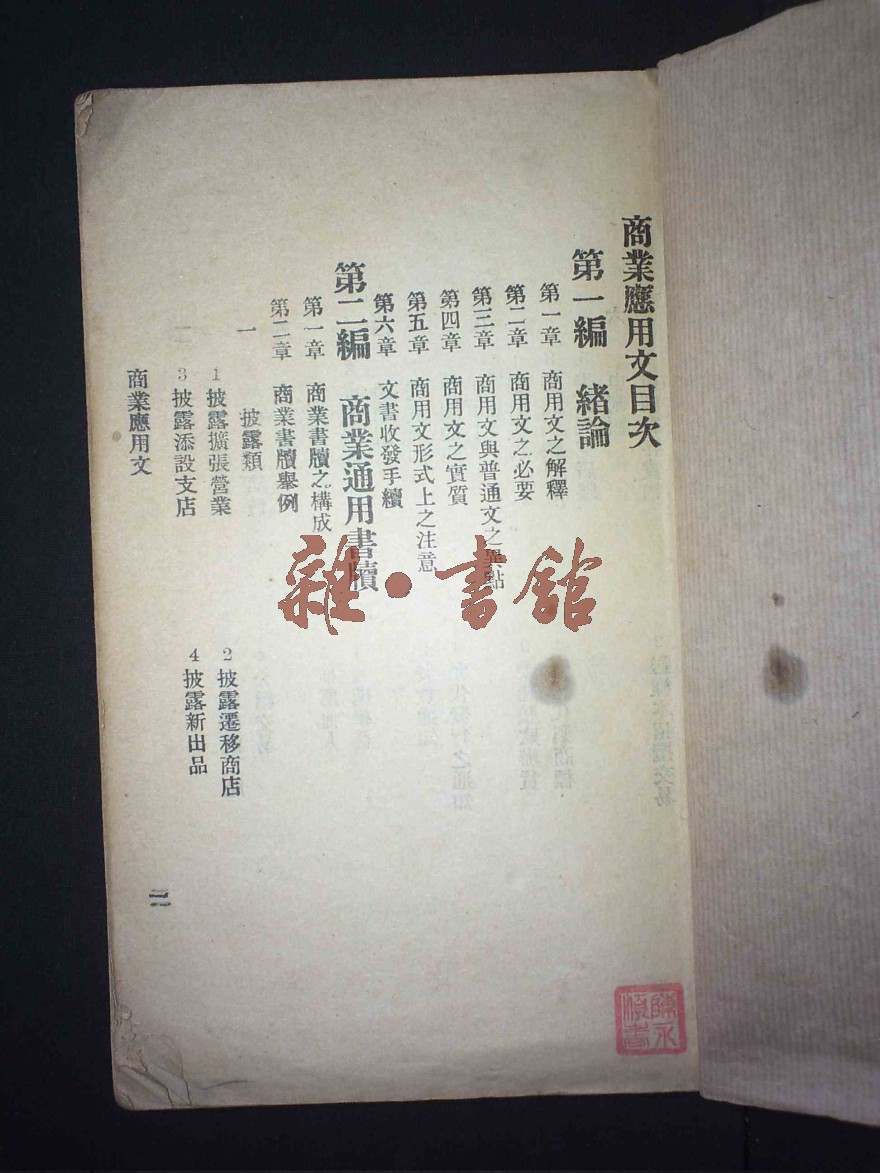 商業應用文目次
第一編 緒論
第一章 商用文之解釋
第二章 商用文之必要
第三章 商用文與普通文之異點
第四章 商用文之實質
第五章 商用文形式上之注意
第六章 文書收發手續
第二編 商業通用書牘
第一章 商業書牘之構成
第二章 商業書牘舉例
一 披露類
1 披露擴張營業 2 披露遷移商店
3 披露添設支店 4 披露新出品
商業應用文
雜·書館